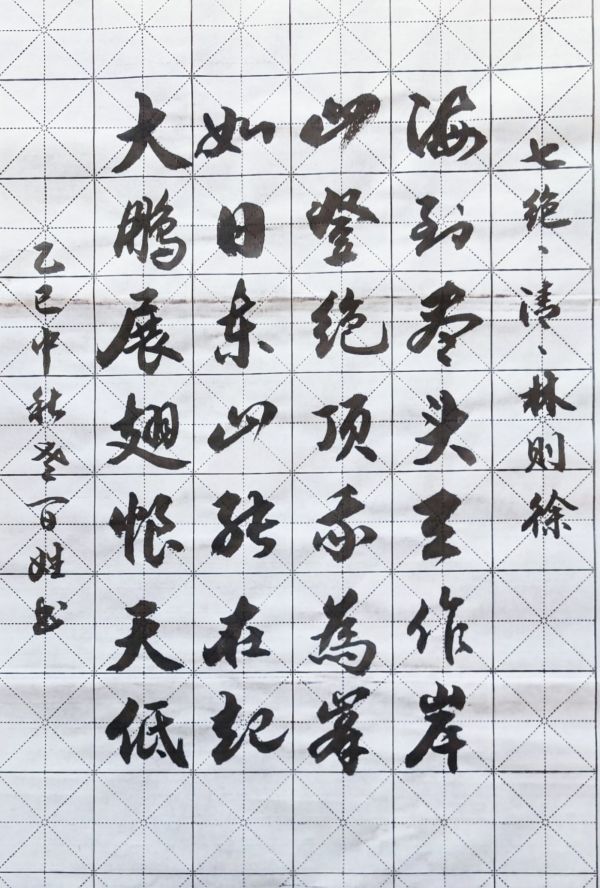 七绝、清、林则徐
海到尽头天作岸
山登绝顶我為峯
如日东山能在起
大鹏展翅恨天低
乙巳中秋百姓书